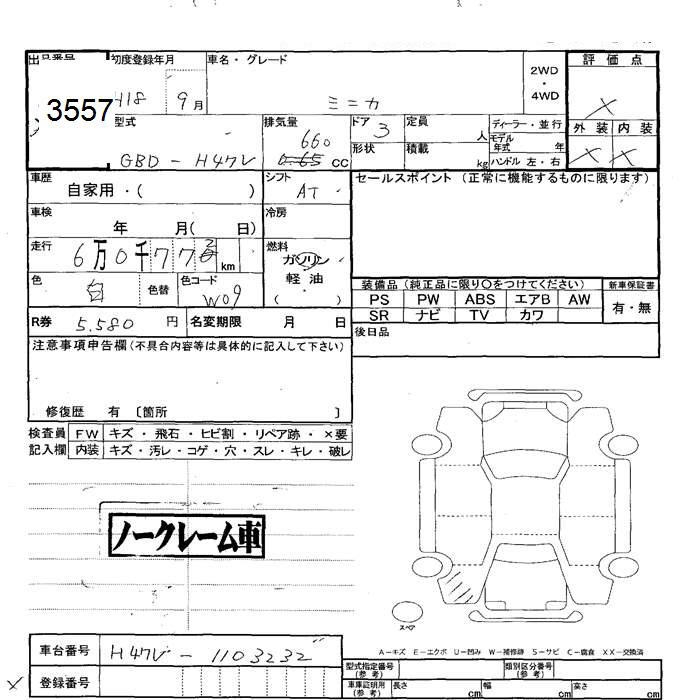 出品番号 初度登録年月 車名・グレード 2WD・4WD 評価点
3557 H18 9月 ミニカ ×
型式 排気量 ドア 3 定員 人 ディーラー・並行 外装 内装
GBD-H47V 660 0.65 CC 形状 積載 kg モデル年式 年 ハンドル 左・右 × ×
車歴 自家用・( ) シフト AT セールスポイント (正常に機能するものに限ります)
車検 年 月( 日) 冷房
走行 6万0千77 km 燃料 ガソリン
色 白 色替 色コード W09 軽油・( )
装備品 (純正品に限り○をつけてください) 新車保証書
PS PW ABS エアB AW 有・無
SR ナビ TV カワ
R券 5.580 円 名変期限 月 日 後日品
注意事項申告欄(不具合内容等は具体的に記入して下さい)
修復歴 有 〔箇所 〕
検査員 FW キズ・飛石・ヒビ割・リペア跡・×要
記入欄 内装 キズ・汚レ・コゲ・穴・スレ・キレ・破レ
ノークレーム車
スペア
A-キズ E-エクボ U-凹み W-補修跡 S-サビ C-腐食 XX-交換済
車台番号 H47V-1103232
型式指定番号(参考) 類別区分番号(参考)
× 登録番号 車庫証明用(参考) 長さ cm 幅 cm 高さ cm